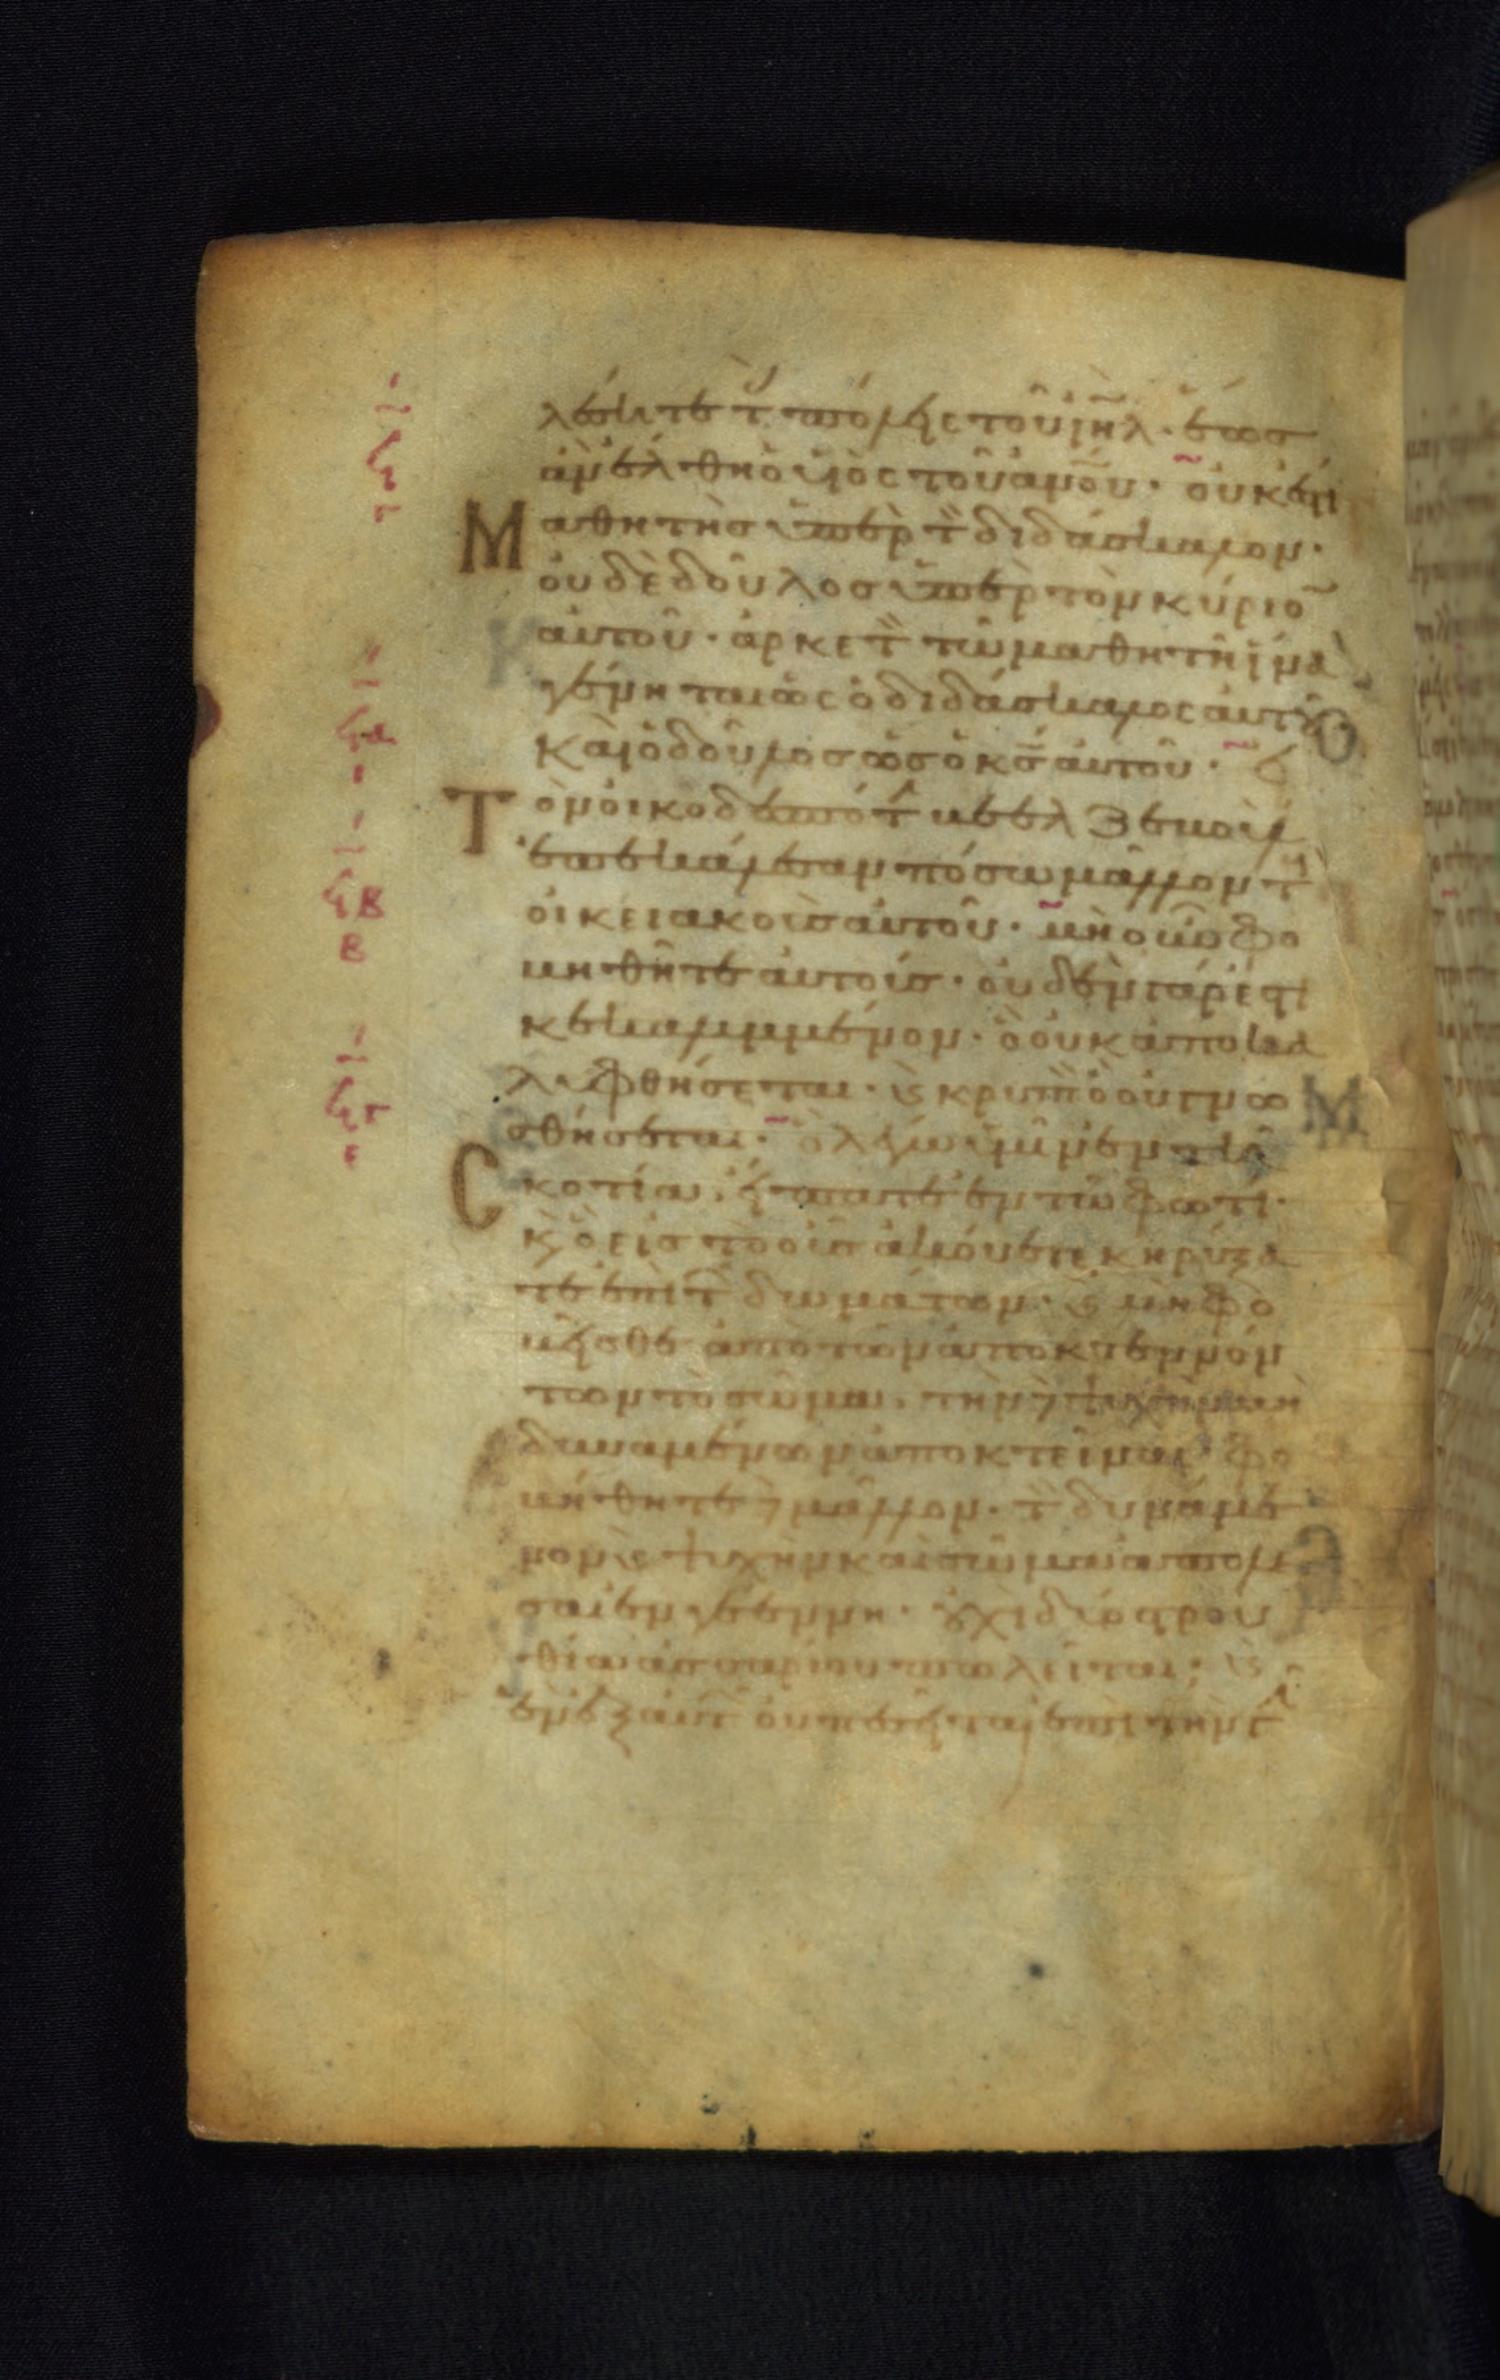 λέσητε τ πόλεις τοῦ ἰη̅λ· ἕως
ἂν ἔλθη ὁ υἱὸς τοῦ α̅ν̅ο̅υ̅· οὐκ ἔστι
Μαθητὴς ὑπὲρ τ διδάσκαλον·
οὐδὲ δοῦλος ὑπὲρ τὸν κύριο̅
αὐτοῦ· ἀρκετ τῶ μαθητῆ ἵνα
γένηται ὡς ὁ διδάσκαλος αὐτοῦ
καὶ ὁ δοῦλος ὡς ὁ κ̅σ̅ αὐτοῦ· εἰ
Τὸν οἰκοδεσπότ βεελζεβοὺλ
ἐπεκάλεσαν πόσω μᾶλλον τ
οἰκειακοὶς αὐτοῦ· μὴ οὖν φο
βηθῆτε αὐτούς· οὐδὲν γάρ ἐστι
κεκαλυμμένον· ὃ οὐκ ἀποκα
λυφθήσεται· κ κρυπτ ὃ οὐ γνω
σθήσεται· ὃ λέγω ὑμῖν ἐν τῆ
Σκοτία, εἴπατε ἐν τῶ φωτί·
κ ὃ εἰς τὸ οὖς ἀκούετε κηρύξα
τε ἐπὶ τ δωμάτων· κ μὴ φο
βεῖσθε ἀπὸ τῶν ἀποκτεννόν
των τὸ σῶμα, τὴν δὲ ψυχὴν μὴ
δυναμένων ἀποκτεῖναι· φο
βήθητε δὲ μᾶλλον· τ δυνάμε
νον κ ψυχὴν καὶ σῶμα ἀπολέ
σαι ἐν γεέννη· οὐχὶ δύο στρου
θία ἀσσαρίου πωλεῖται; κ
ἓν ἐξ αὐτ οὐ πεσεῖται ἐπὶ τὴν γ